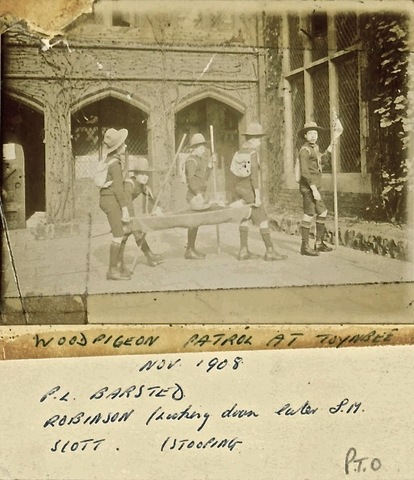 WOODPIGEON PATROL AT TOYNBEE
NOV. 1908
P.L. BARSTED
ROBINSON (Looking down later S.M.
SCOTT. (STOOPING
P.T.O